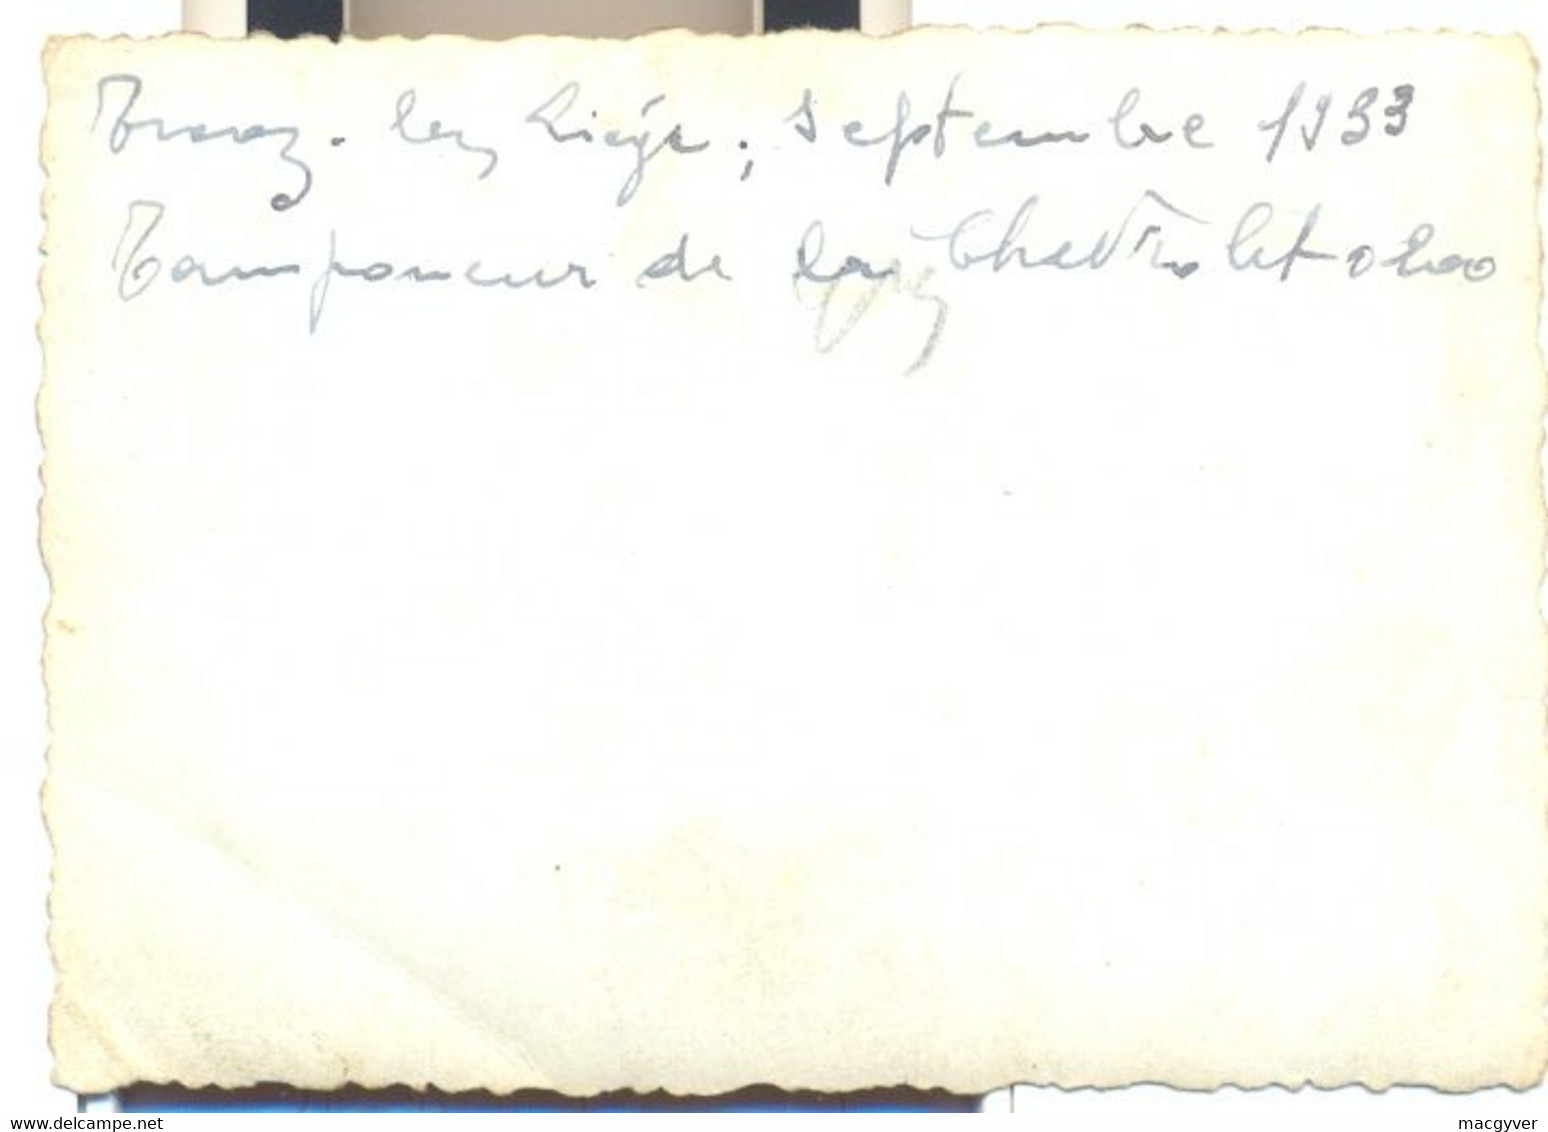 Trooz. lez Liège, septembre 1933
Tamponeur de la Chevrolet
delcampe.net
macgyver